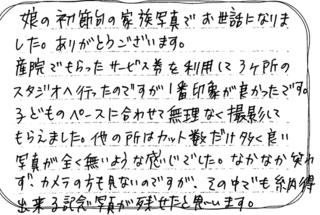 娘の初節句の家族写真でお世話になりま
した。ありがとうございます。
産院でもらったサービス券を利用して3ヶ所の
スタジオへ行ったのですが1番印象が良かったです。
子どものペースに合わせて無理なく撮影して
もらえました。他の所はカット数だけ多く良い
写真が全く無いような感じでした。なかなか笑わ
ず、カメラの方も見ないのですが、その中でも納得
出来る記念写真が残せたと思います。